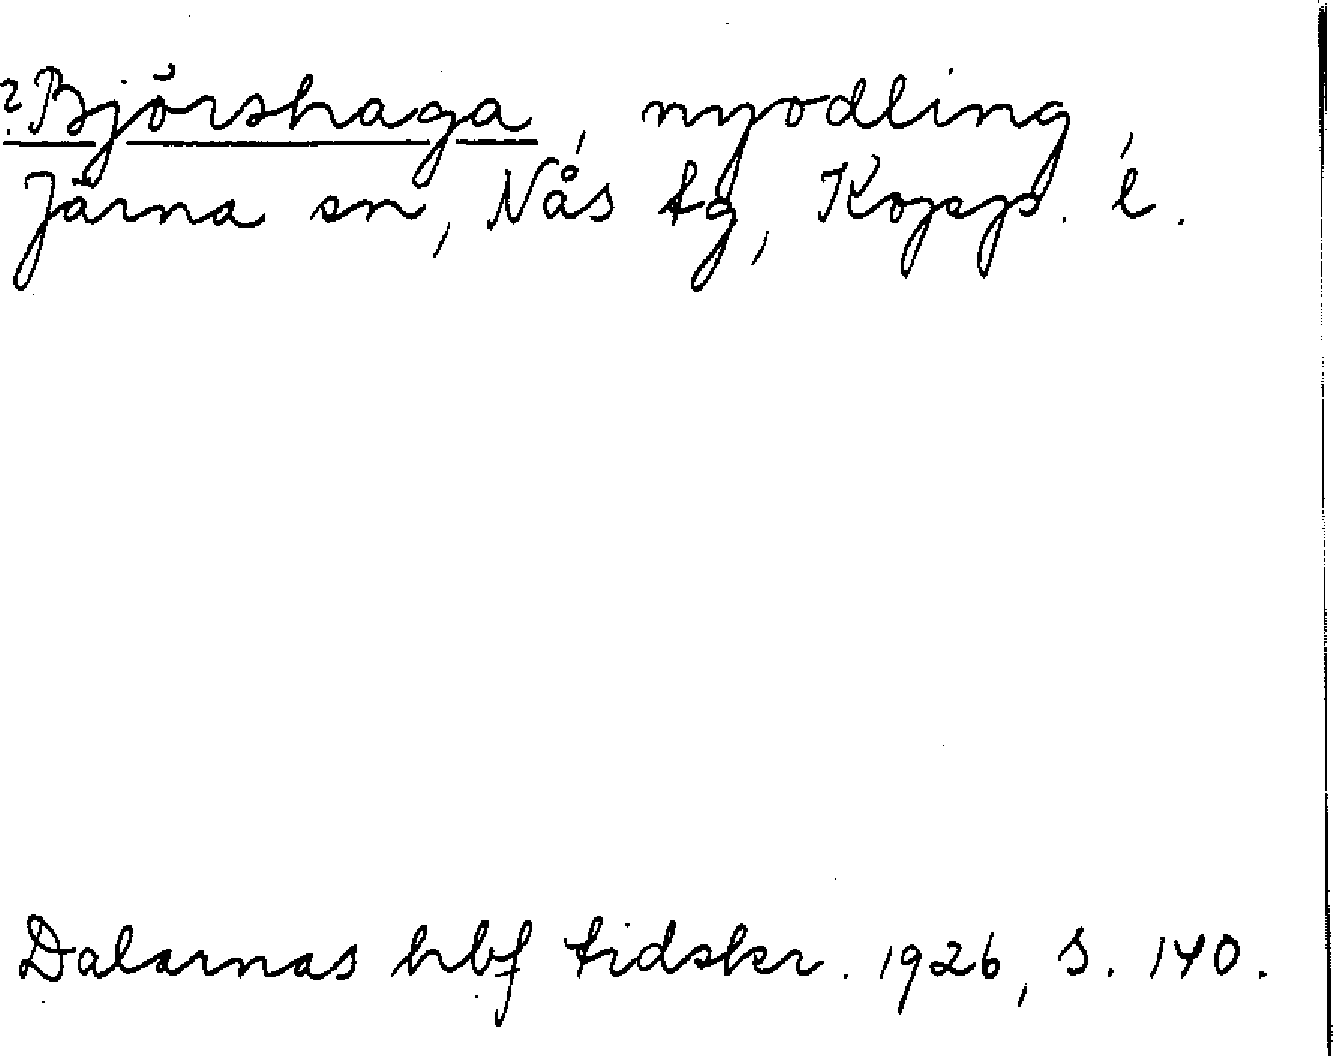 ?Björshaga, nyodling,
Järna sn, Nås tg, Kopp. l.
Dalarnas hbf tidskr. 1926, s. 140.